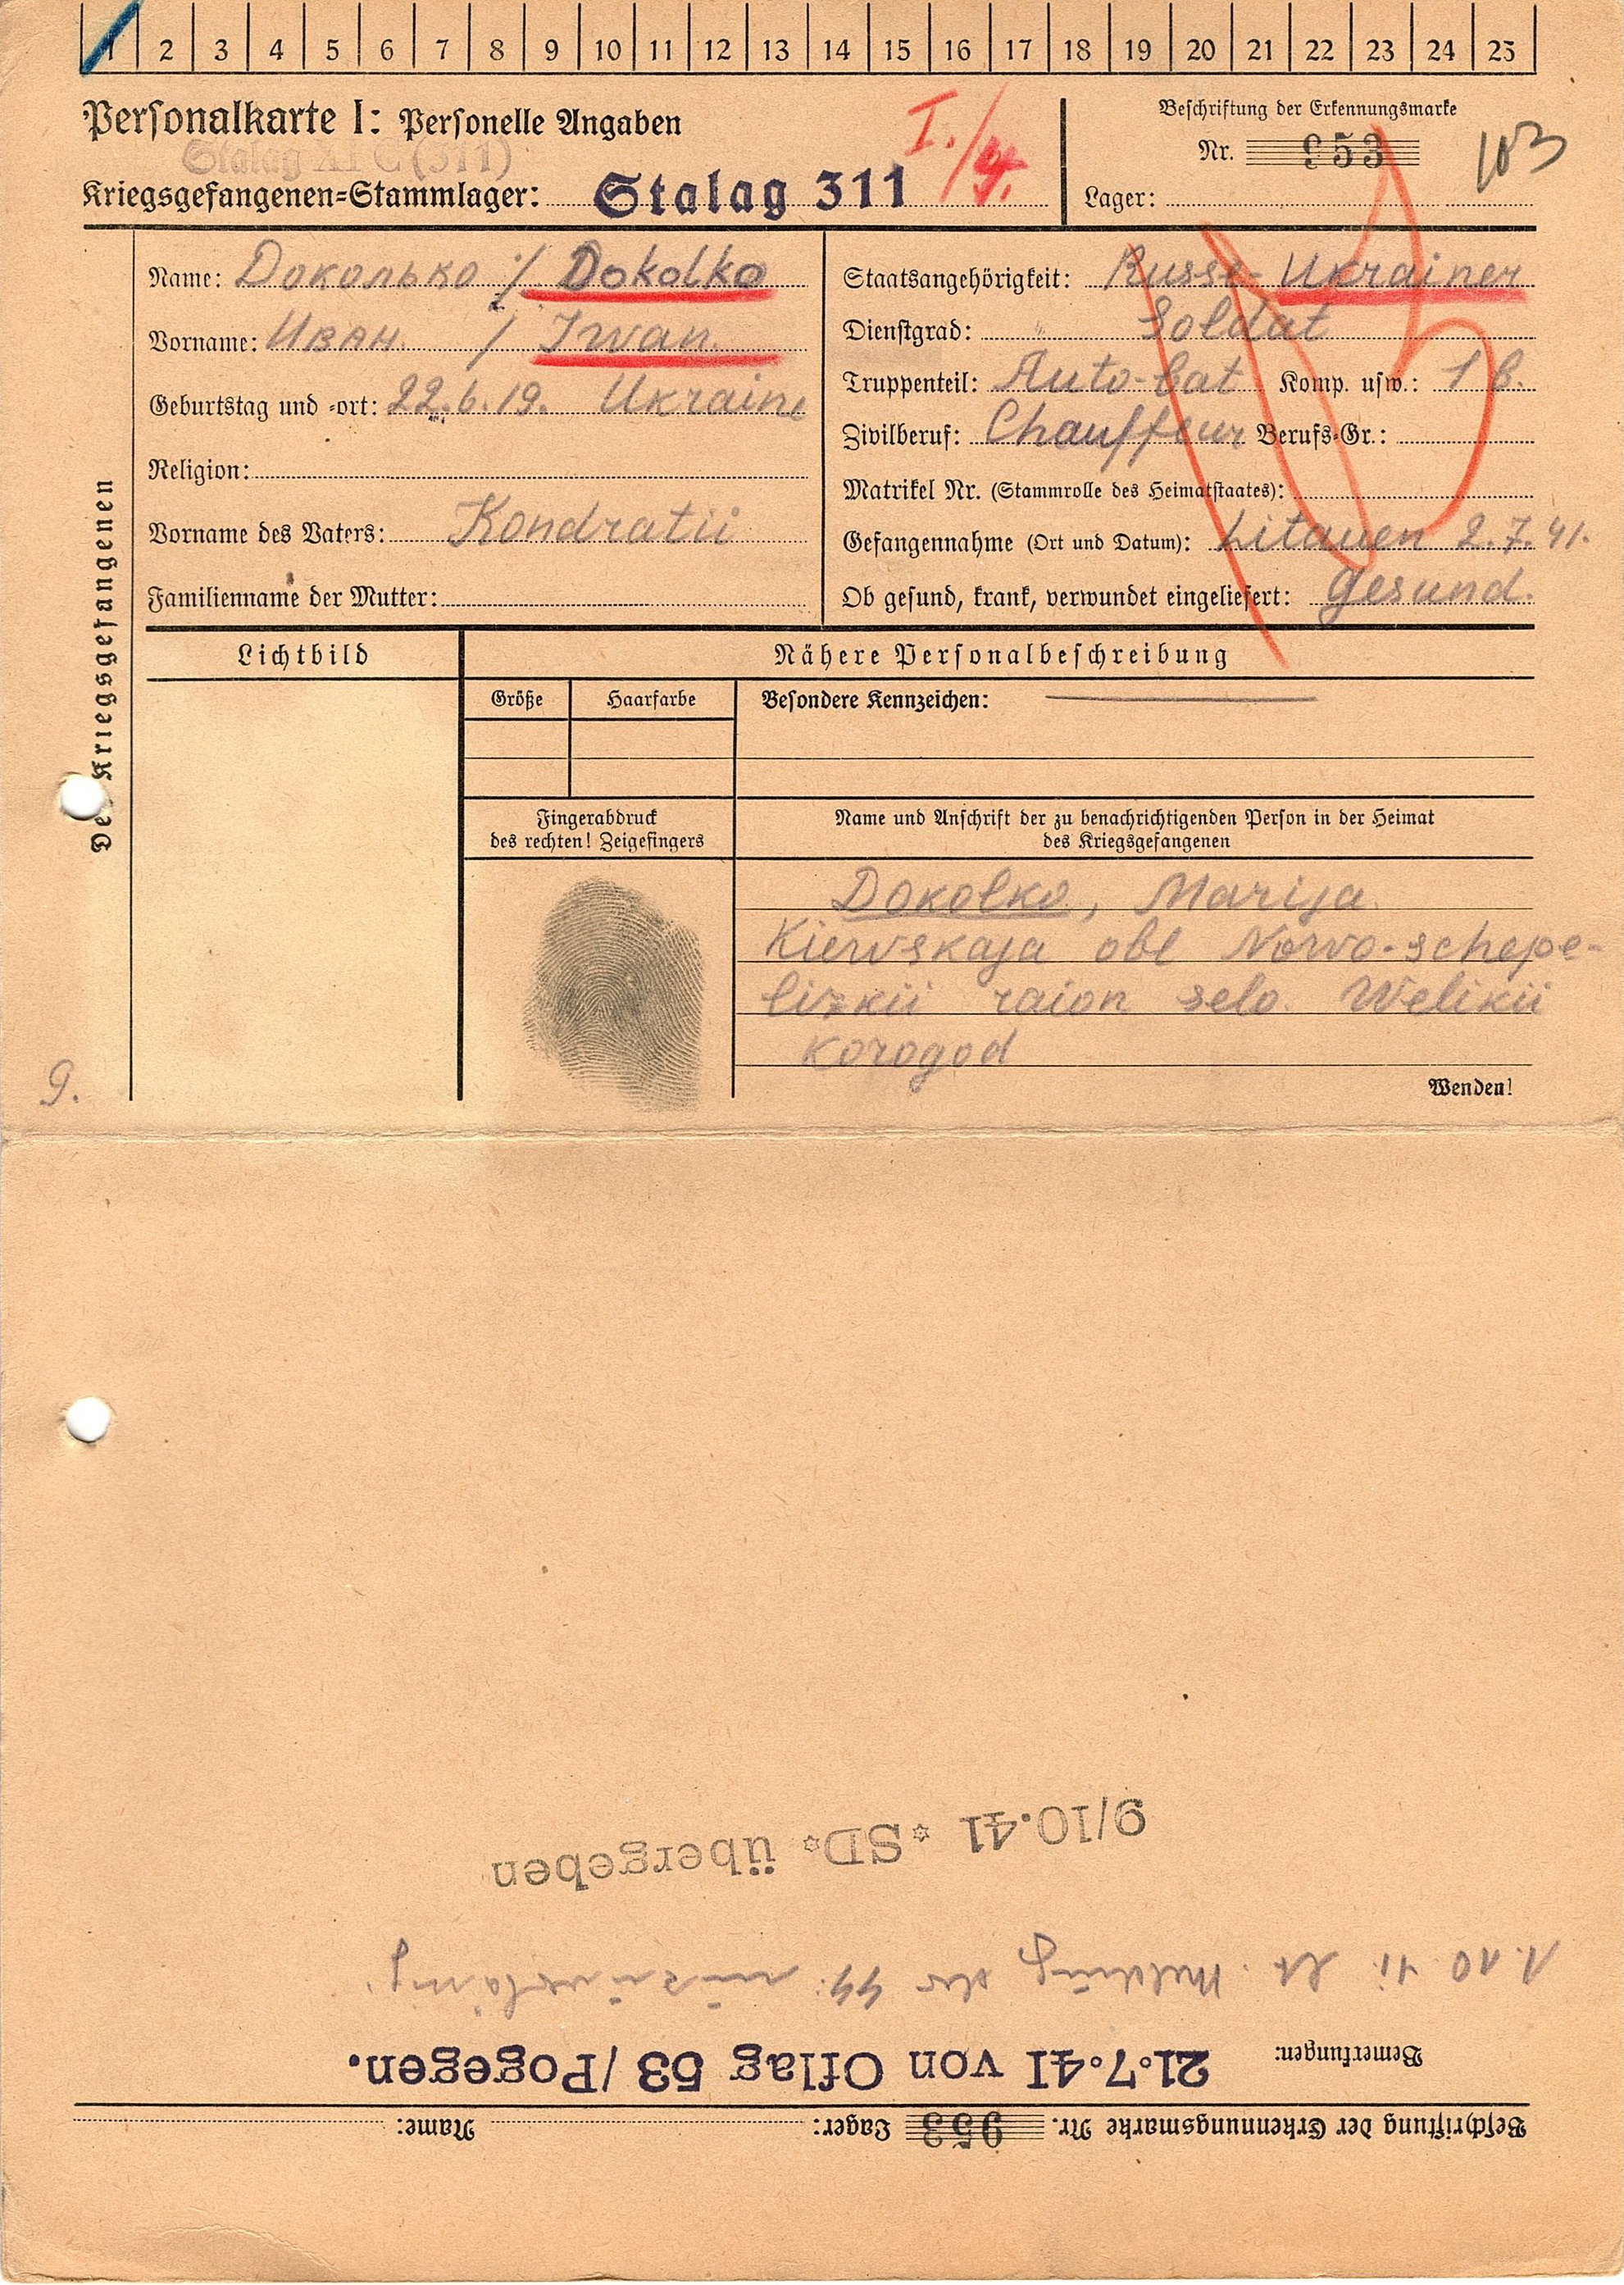 1 2 3 4 5 6 7 8 9 10 11 12 13 14 15 16 17 18 19 20 21 22 23 24 25
Personalkarte I: Personelle Angaben
I./4.
Stalag XI C (311)
Kriegsgefangenen=Stammlager: Stalag 311
Beschriftung der Erkennungsmarke
Nr. 953
103
Lager:
Des Kriegsgefangenen
Name: Доколько / Dokolko
Vorname: Иван / Iwan
Geburtstag und =ort: 22.6.19. Ukraine
Religion:
Vorname des Vaters: Kondratii
Familienname der Mutter:
Staatsangehörigkeit: Russe- Ukrainer
Dienstgrad: Soldat
Truppenteil: Auto-bat Komp. usw.: 1 b.
Zivilberuf: Chauffeur Berufs=Gr.:
Matrikel Nr. (Stammrolle des Heimatstaates):
Gefangennahme (Ort und Datum): Litauen 2.7.41.
Ob gesund, krank, verwundet eingeliefert: gesund.
Lichtbild
Nähere Personalbeschreibung
Größe Haarfarbe
Besondere Kennzeichen:
Fingerabdruck
des rechten! Zeigefingers
Name und Anschrift der zu benachrichtigenden Person in der Heimat
des Kriegsgefangenen
Dokolko, Marija
Kiewskaja obl Nowo-schepe-
lizkii raion selo Welikii
Korogod
Wenden!
9.
Beschriftung der Erkennungsmarke Nr. 953 Lager: Name:
Bemerkungen: 21.7.41 von Oflag 53/Pogegen.
Meldung der
9/10.41 * SD* übergeben